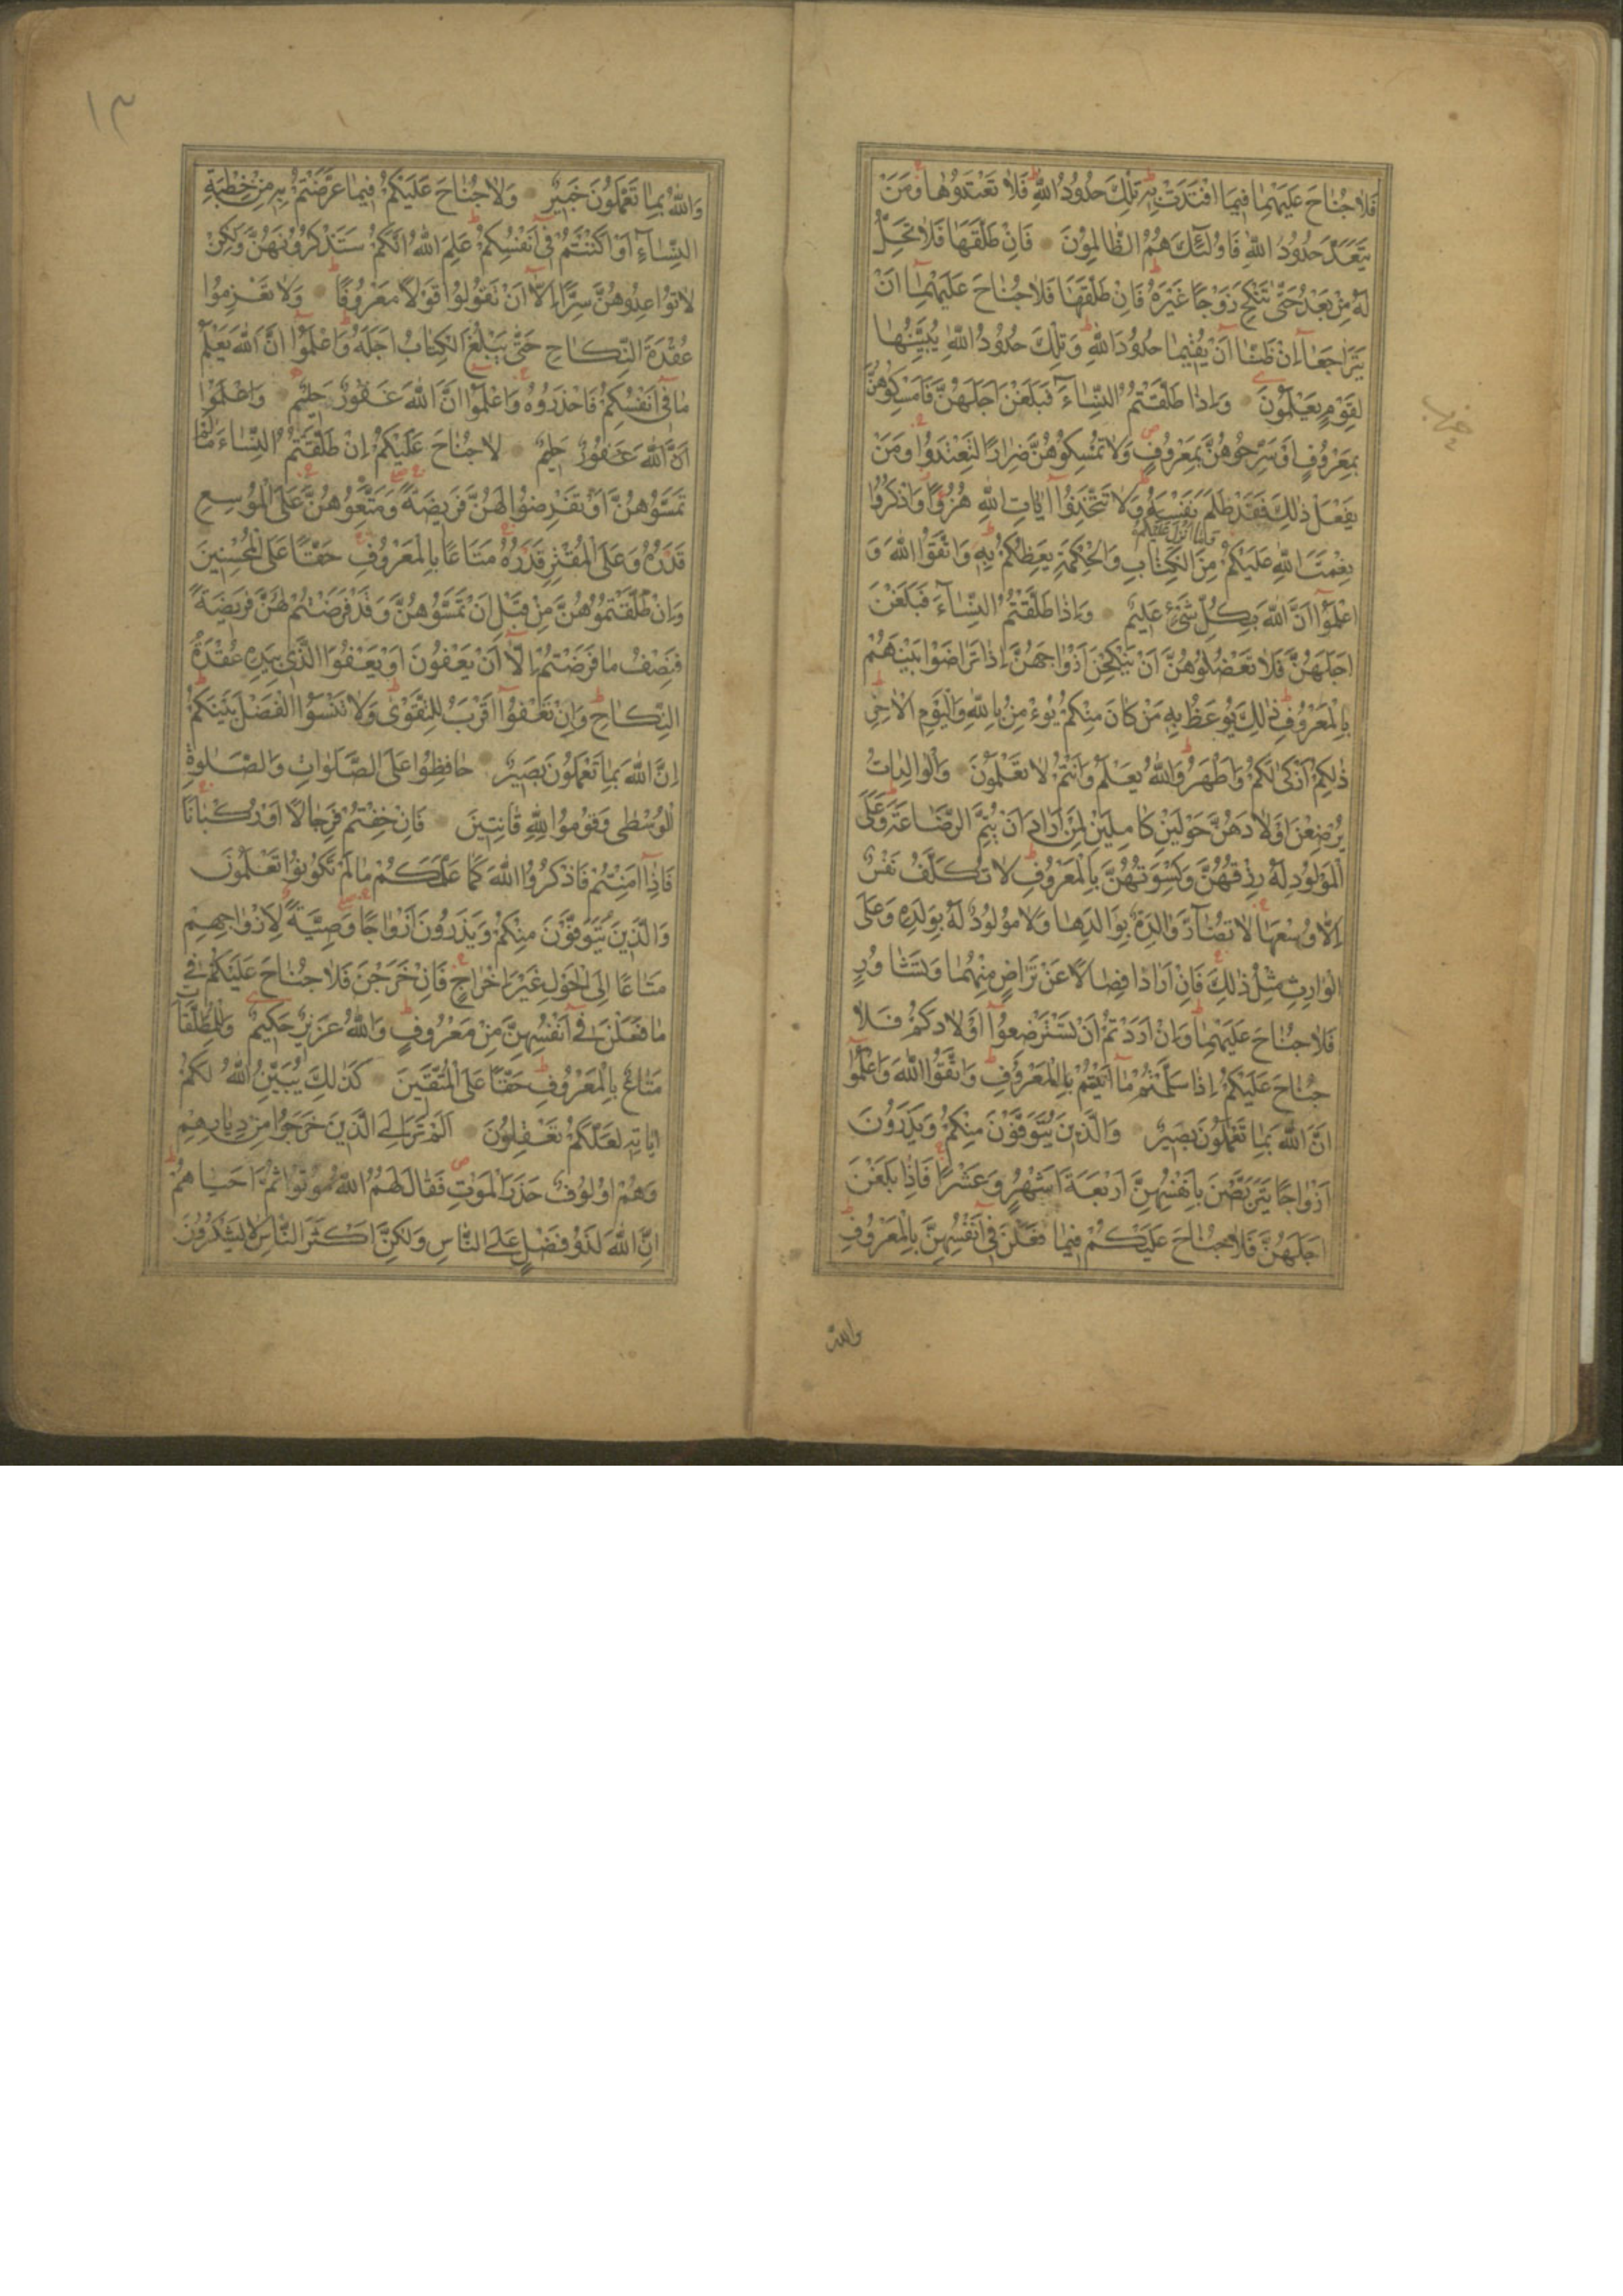 فَلَا جُنَاحَ عَلَيْهِمَا فِيمَا افْتَدَتْ بِهِ تِلْكَ حُدُودُ اللّٰهِ فَلَا تَعْتَدُوهَا وَمَنْ
يَتَعَدَّ حُدُودَ اللّٰهِ فَاُولٰئِكَ هُمُ الظَّالِمُونَ فَاِنْ طَلَّقَهَا فَلَا تَحِلُّ
لَهُ مِنْ بَعْدُ حَتّٰى تَنْكِحَ زَوْجًا غَيْرَهُ فَاِنْ طَلَّقَهَا فَلَا جُنَاحَ عَلَيْهِمَا اَنْ
يَتَرَاجَعَا اِنْ ظَنَّا اَنْ يُقِيمَا حُدُودَ اللّٰهِ وَتِلْكَ حُدُودُ اللّٰهِ يُبَيِّنُهَا
لِقَوْمٍ يَعْلَمُونَ وَاِذَا طَلَّقْتُمُ النِّسَاءَ فَبَلَغْنَ اَجَلَهُنَّ فَاَمْسِكُوهُنَّ
بِمَعْرُوفٍ اَوْ سَرِّحُوهُنَّ بِمَعْرُوفٍ وَلَا تُمْسِكُوهُنَّ ضِرَارًا لِتَعْتَدُوا وَمَنْ
يَفْعَلْ ذٰلِكَ فَقَدْ ظَلَمَ نَفْسَهُ وَلَا تَتَّخِذُوا اٰيَاتِ اللّٰهِ هُزُوًا وَاذْكُرُوا
وما انزل عليكم
نِعْمَتَ اللّٰهِ عَلَيْكُمْ مِنَ الْكِتَابِ وَالْحِكْمَةِ يَعِظُكُمْ بِهِ وَاتَّقُوا اللّٰهَ وَ
اعْلَمُوا اَنَّ اللّٰهَ بِكُلِّ شَيْءٍ عَلِيمٌ وَاِذَا طَلَّقْتُمُ النِّسَاءَ فَبَلَغْنَ
اَجَلَهُنَّ فَلَا تَعْضُلُوهُنَّ اَنْ يَنْكِحْنَ اَزْوَاجَهُنَّ اِذَا تَرَاضَوْا بَيْنَهُمْ
بِالْمَعْرُوفِ ذٰلِكَ يُوعَظُ بِهِ مَنْ كَانَ مِنْكُمْ يُؤْمِنُ بِاللّٰهِ وَالْيَوْمِ الْاٰخِرِ
ذٰلِكُمْ اَزْكٰى لَكُمْ وَاَطْهَرُ وَاللّٰهُ يَعْلَمُ وَاَنْتُمْ لَا تَعْلَمُونَ وَالْوَالِدَاتُ
يُرْضِعْنَ اَوْلَادَهُنَّ حَوْلَيْنِ كَامِلَيْنِ لِمَنْ اَرَادَ اَنْ يُتِمَّ الرَّضَاعَةَ وَعَلَى
الْمَوْلُودِ لَهُ رِزْقُهُنَّ وَكِسْوَتُهُنَّ بِالْمَعْرُوفِ لَا تُكَلَّفُ نَفْسٌ
اِلَّا وُسْعَهَا لَا تُضَارَّ وَالِدَةٌ بِوَلَدِهَا وَلَا مَوْلُودٌ لَهُ بِوَلَدِهِ وَعَلَى
الْوَارِثِ مِثْلُ ذٰلِكَ فَاِنْ اَرَادَا فِصَالًا عَنْ تَرَاضٍ مِنْهُمَا وَتَشَاوُرٍ
فَلَا جُنَاحَ عَلَيْهِمَا وَاِنْ اَرَدْتُمْ اَنْ تَسْتَرْضِعُوا اَوْلَادَكُمْ فَلَا
جُنَاحَ عَلَيْكُمْ اِذَا سَلَّمْتُمْ مَا اٰتَيْتُمْ بِالْمَعْرُوفِ وَاتَّقُوا اللّٰهَ وَاعْلَمُوا
اَنَّ اللّٰهَ بِمَا تَعْمَلُونَ بَصِيرٌ وَالَّذِينَ يُتَوَفَّوْنَ مِنْكُمْ وَيَذَرُونَ
اَزْوَاجًا يَتَرَبَّصْنَ بِاَنْفُسِهِنَّ اَرْبَعَةَ اَشْهُرٍ وَعَشْرًا فَاِذَا بَلَغْنَ
اَجَلَهُنَّ فَلَا جُنَاحَ عَلَيْكُمْ فِيمَا فَعَلْنَ فِي اَنْفُسِهِنَّ بِالْمَعْرُوفِ
والله
١٣
وَاللّٰهُ بِمَا تَعْمَلُونَ خَبِيرٌ وَلَا جُنَاحَ عَلَيْكُمْ فِيمَا عَرَّضْتُمْ بِهِ مِنْ خِطْبَةِ
النِّسَاءِ اَوْ اَكْنَنْتُمْ فِي اَنْفُسِكُمْ عَلِمَ اللّٰهُ اَنَّكُمْ سَتَذْكُرُونَهُنَّ وَلٰكِنْ
لَا تُوَاعِدُوهُنَّ سِرًّا اِلَّا اَنْ تَقُولُوا قَوْلًا مَعْرُوفًا وَلَا تَعْزِمُوا
عُقْدَةَ النِّكَاحِ حَتّٰى يَبْلُغَ الْكِتَابُ اَجَلَهُ وَاعْلَمُوا اَنَّ اللّٰهَ يَعْلَمُ
مَا فِي اَنْفُسِكُمْ فَاحْذَرُوهُ وَاعْلَمُوا اَنَّ اللّٰهَ غَفُورٌ حَلِيمٌ وَاعْلَمُوا
اَنَّ اللّٰهَ غَفُورٌ حَلِيمٌ لَا جُنَاحَ عَلَيْكُمْ اِنْ طَلَّقْتُمُ النِّسَاءَ مَا لَمْ
تَمَسُّوهُنَّ اَوْ تَفْرِضُوا لَهُنَّ فَرِيضَةً وَمَتِّعُوهُنَّ عَلَى الْمُوسِعِ
قَدَرُهُ وَعَلَى الْمُقْتِرِ قَدَرُهُ مَتَاعًا بِالْمَعْرُوفِ حَقًّا عَلَى الْمُحْسِنِينَ
وَاِنْ طَلَّقْتُمُوهُنَّ مِنْ قَبْلِ اَنْ تَمَسُّوهُنَّ وَقَدْ فَرَضْتُمْ لَهُنَّ فَرِيضَةً
فَنِصْفُ مَا فَرَضْتُمْ اِلَّا اَنْ يَعْفُونَ اَوْ يَعْفُوَا الَّذِي بِيَدِهِ عُقْدَةُ
النِّكَاحِ وَاِنْ تَعْفُوا اَقْرَبُ لِلتَّقْوٰى وَلَا تَنْسَوُا الْفَضْلَ بَيْنَكُمْ
اِنَّ اللّٰهَ بِمَا تَعْمَلُونَ بَصِيرٌ حَافِظُوا عَلَى الصَّلَوَاتِ وَالصَّلٰوةِ
الْوُسْطٰى وَقُومُوا لِلّٰهِ قَانِتِينَ فَاِنْ خِفْتُمْ فَرِجَالًا اَوْ رُكْبَانًا
فَاِذَا اَمِنْتُمْ فَاذْكُرُوا اللّٰهَ كَمَا عَلَّمَكُمْ مَا لَمْ تَكُونُوا تَعْلَمُونَ
وَالَّذِينَ يُتَوَفَّوْنَ مِنْكُمْ وَيَذَرُونَ اَزْوَاجًا وَصِيَّةً لِاَزْوَاجِهِمْ
مَتَاعًا اِلَى الْحَوْلِ غَيْرَ اِخْرَاجٍ فَاِنْ خَرَجْنَ فَلَا جُنَاحَ عَلَيْكُمْ فِي
مَا فَعَلْنَ فِي اَنْفُسِهِنَّ مِنْ مَعْرُوفٍ وَاللّٰهُ عَزِيزٌ حَكِيمٌ وَلِلْمُطَلَّقَاتِ
مَتَاعٌ بِالْمَعْرُوفِ حَقًّا عَلَى الْمُتَّقِينَ كَذٰلِكَ يُبَيِّنُ اللّٰهُ لَكُمْ
اٰيَاتِهِ لَعَلَّكُمْ تَعْقِلُونَ اَلَمْ تَرَ اِلَى الَّذِينَ خَرَجُوا مِنْ دِيَارِهِمْ
وَهُمْ اُلُوفٌ حَذَرَ الْمَوْتِ فَقَالَ لَهُمُ اللّٰهُ مُوتُوا ثُمَّ اَحْيَاهُمْ
اِنَّ اللّٰهَ لَذُو فَضْلٍ عَلَى النَّاسِ وَلٰكِنَّ اَكْثَرَ النَّاسِ لَا يَشْكُرُونَ